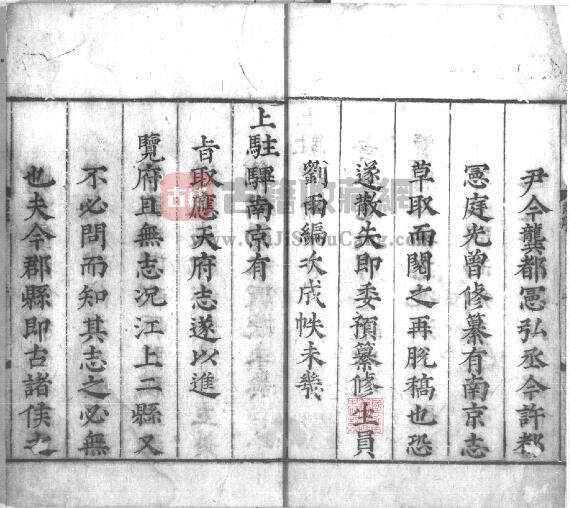 尹今龔都憲弘丞今許都
憲庭光曾修纂有南京志
草取而閱之再脫稿也恐
遂散失即委預纂修生員
劉雨編次成帙未幾
上駐驆南京有
旨取應天府志遂以進
覽府且無志況江上二縣又
不必問而知其志之必無
也夫今郡縣即古諸侯之
古籍收藏網